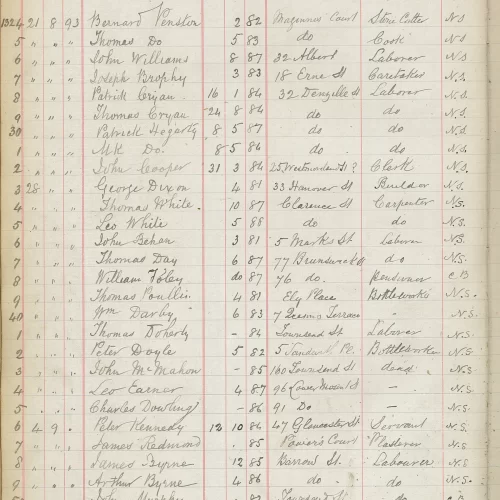 1324 21 8 93 Bernard Penston 2 82 Magennis Court Stone Cutter N S
5 " " " Thomas Do 5 83 do Cook N S.
6 " " " John Williams 8 87 32 Albert Laborer N S.
7 " " " Joseph Brophy 3 83 18 Erne St Caretaker N.S.
8 " " " Patrick Cryan 16 1 84 32 Denzille St Laborer N.S.
9 " " " Thomas Cryan 24 8 84 do do N.S.
30 " " " Patrick Hegarty 8 5 87 do do N.S.
1 " " " Mk Do. 8 5 86 do do N.S.
2 " " " John Cooper 31 3 84 25 Westmoreland St ? Clerk N.S.
3 28 " " George Dixon 4 81 33 Hanover St Builder N S.
4 " " " Thomas White. 10 87 Clarence St Carpenter N S.
5 " " " Leo White 5 88 do do N.S.
6 " " " John Behan 3 81 5 Marks St Laborer N.S.
7 " " " Thomas Day 6 87 77 Brunswick St do N.S.
8 " " " William Foley do 87 76 do. Pensioner C.B
9 " " " Thomas 4 81 Ely Place Bottleworker N.S.
40 " " " Wm Darby 6 83 7 Terrace " N.S.
1 " " " Thomas Doherty - 84 Townsend St Laborer N.S.
2 " " " Peter Doyle 5 82 5 Pl. Bottleworker N.S.
3 " " " John McMahon - 85 160 Townsend St do N.S.
4 " " " Leo Earner 4 87 96 Lower Mount St - N.S.
5 " " " Charles Dowling - 86 91 Do N.S.
6 4 9 . Peter Kennedy 12 10 86 47 Gloucester St Servant N.S.
7 " " " James Redmond . 85 Power's Court Plasterer N.S.
8 " " " James Byrne 12 85 Barrow St. Labourer N.S.
9 " " " Arthur Byrne 4 86 do do N.S.